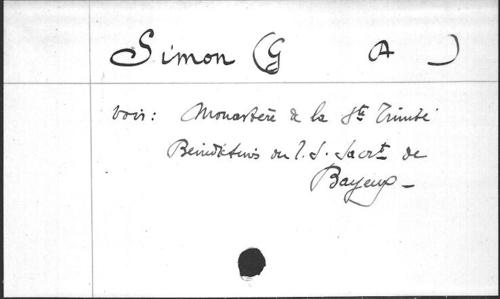 Simon (G A )
voir: Monastère de la Ste Trinité
Bénédictins du T. S. Sacrt de
Bayeux